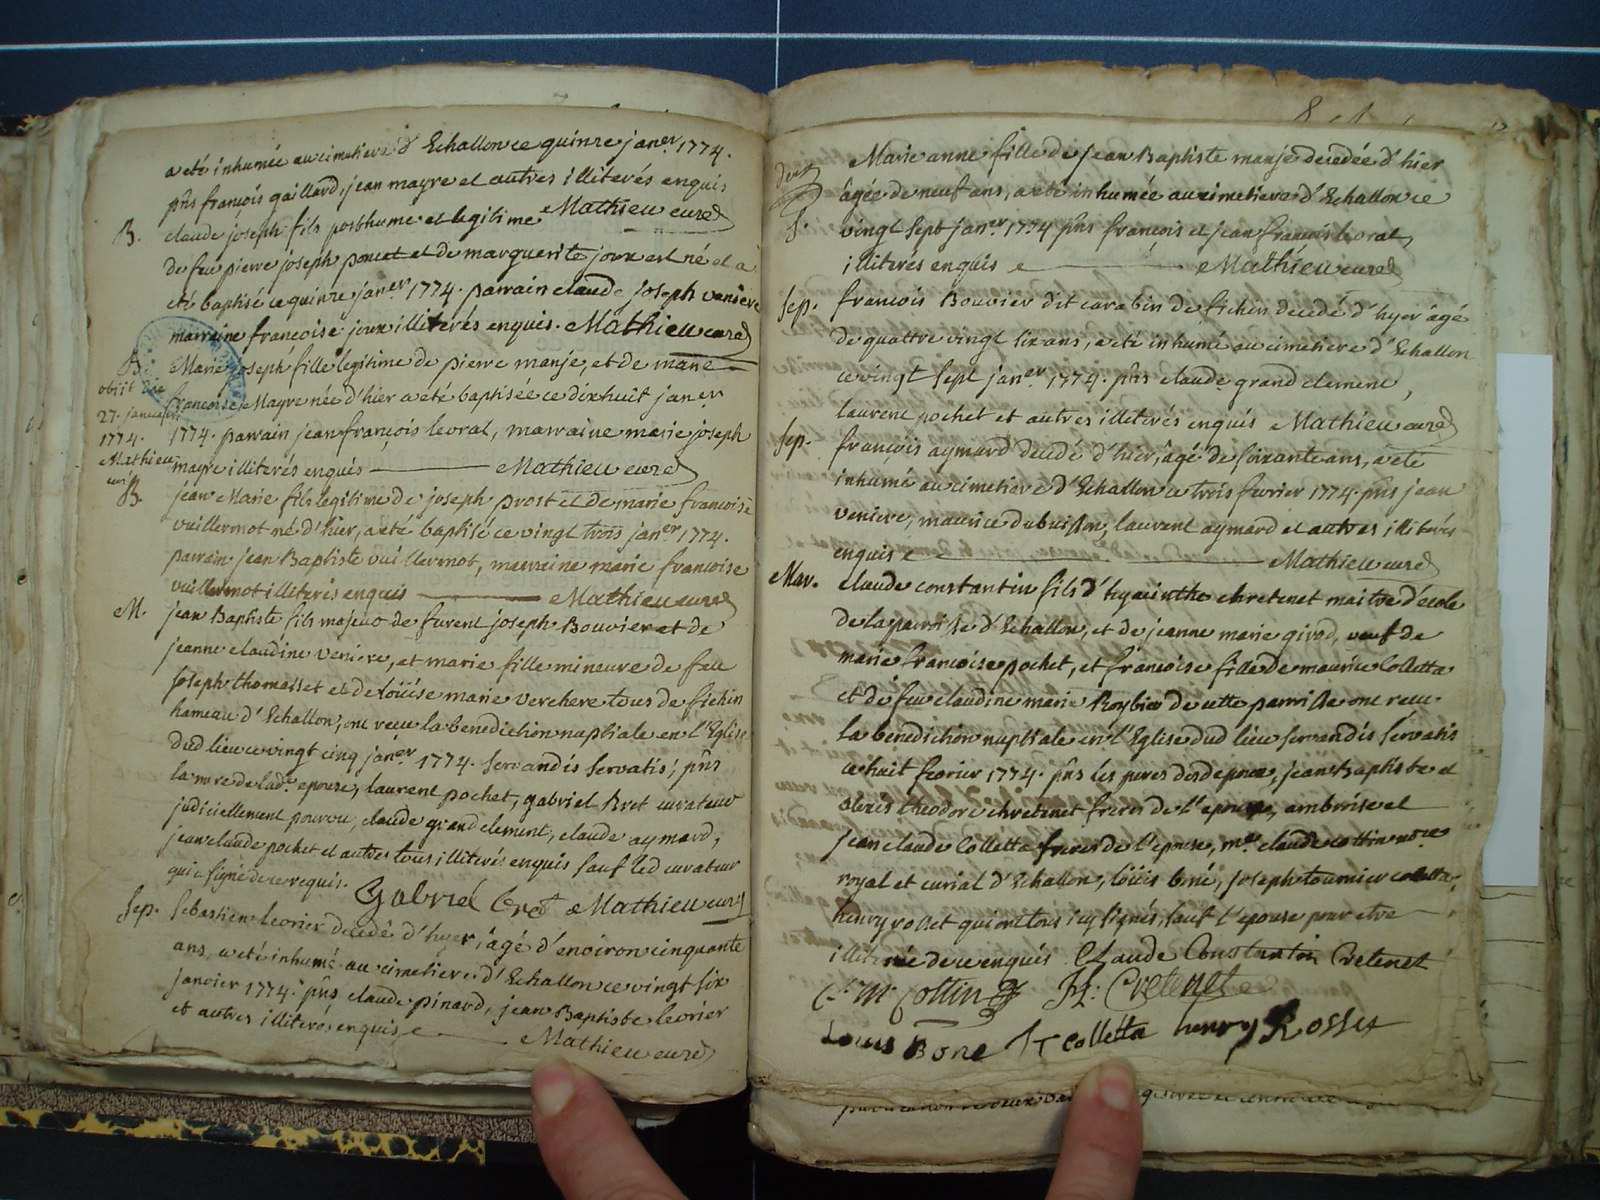 a eté inhumée au cimetiere d'Echallon ce quinze janer. 1774.
pns françois gaillard, jean mayre et autres illiterés enquis
Mathieu curé
B. claude joseph fils posthume et legitime
de feu pierre joseph poncet et de marguerite joux est né et a
eté baptisé ce quinze janer 1774. parrain claude joseph veniere
marraine françoise joux illiterés enquis. Mathieu curé
B. Marie joseph fille legitime de pierre manje, et de marie
obiit die
27. januarii
1774.
Mathieu
curé
françoise Mayre née d'hier a eté baptisée ce dixhuit janer
1774. parrain jean françois leoral, marraine marie joseph
mayre illiterés enquis Mathieu curé
B. jean Marie fils legitime de joseph prost et de marie françoise
vuillermot né d'hier, a eté baptisé ce vingt trois janer 1774.
parrain jean Baptiste vuillermot, marraine marie françoise
vuillermot illiterés enquis Mathieu curé
M. jean Baptiste fils majeur de furent joseph Bouvier et de
jeanne claudine veniere, et marie fille mineure de feu
joseph thomasset et de loüise marie verchere tous de fichin
hameau d'Echallon, ont reçu la benediction nuptiale en l'Eglise
dud lieu ce vingt cinq janer 1774. servandis servatis, pns
la mere de lad. epouse, laurent pochet, gabriel Bret curateur
judiciellement pourvu, claude grandclement, claude aymard,
jean claude pochet et autres tous illiterés enquis sauf led curateur
qui a signé de ce requis. Gabriel Bret Mathieu curé
Sep. Sebastien leorier decedé d'hyer, âgé d'environ cinquante
ans, a eté inhumé au cimetiere d'Echallon ce vingt six
janvier 1774. pns claude pinard, jean Baptiste leorier
et autres illiterés enquis Mathieu curé
Marie anne fille de jean Baptiste manje decedée d'hier
âgée de neuf ans, a eté inhumée au cimetiere d'Echallon ce
vingt sept janer. 1774 pns françois et jean françois leoral,
illiterés enquis Mathieu curé
Sep. françois Bouvier dit carabin de fichin decedé d'hyer âgé
de quattre vingt six ans, a eté inhumé au cimetiere d'Echallon
ce vingt sept janer. 1774. pns claude grandclement,
laurent pochet et autres illiterés enquis Mathieu curé
Sep. françois aymard decedé d'hier, âgé de soixante ans, a eté
inhumé au cimetiere d'Echallon ce trois fevrier 1774. pns jean
veniere, maurice dubuisson, laurent aymard et autres illiterés
enquis Mathieu curé
Mar. claude constantin fils d'hyacinthe chretenet maitre d'ecole
de la parroisse d'Echallon, et de jeanne marie girod, veuf de
marie françoise pochet, et françoise fille de maurice Colletta
et de feu claudine marie Roybier de cette parroisse ont reçu
la benediction nuptiale en l'Eglise dud lieu servandis servatis
ce huit fevrier 1774. pns les peres desd epoux, jean Baptiste et
alexis theodore chretenet freres de l'epoux, ambroise et
jean claude Colletta freres de l'epouse, mre claude cottin nore
royal et curial d'Echallon, loüis boné, joseph tournier colletta,
henry rosset qui ont tous icy signés, sauf l'epouse pour etre
illiterée de ce enquis Claude Constantin Cretenet
Cl. M. Cottin H. Cretenet
Louis Bone JT Colletta henry Rosset